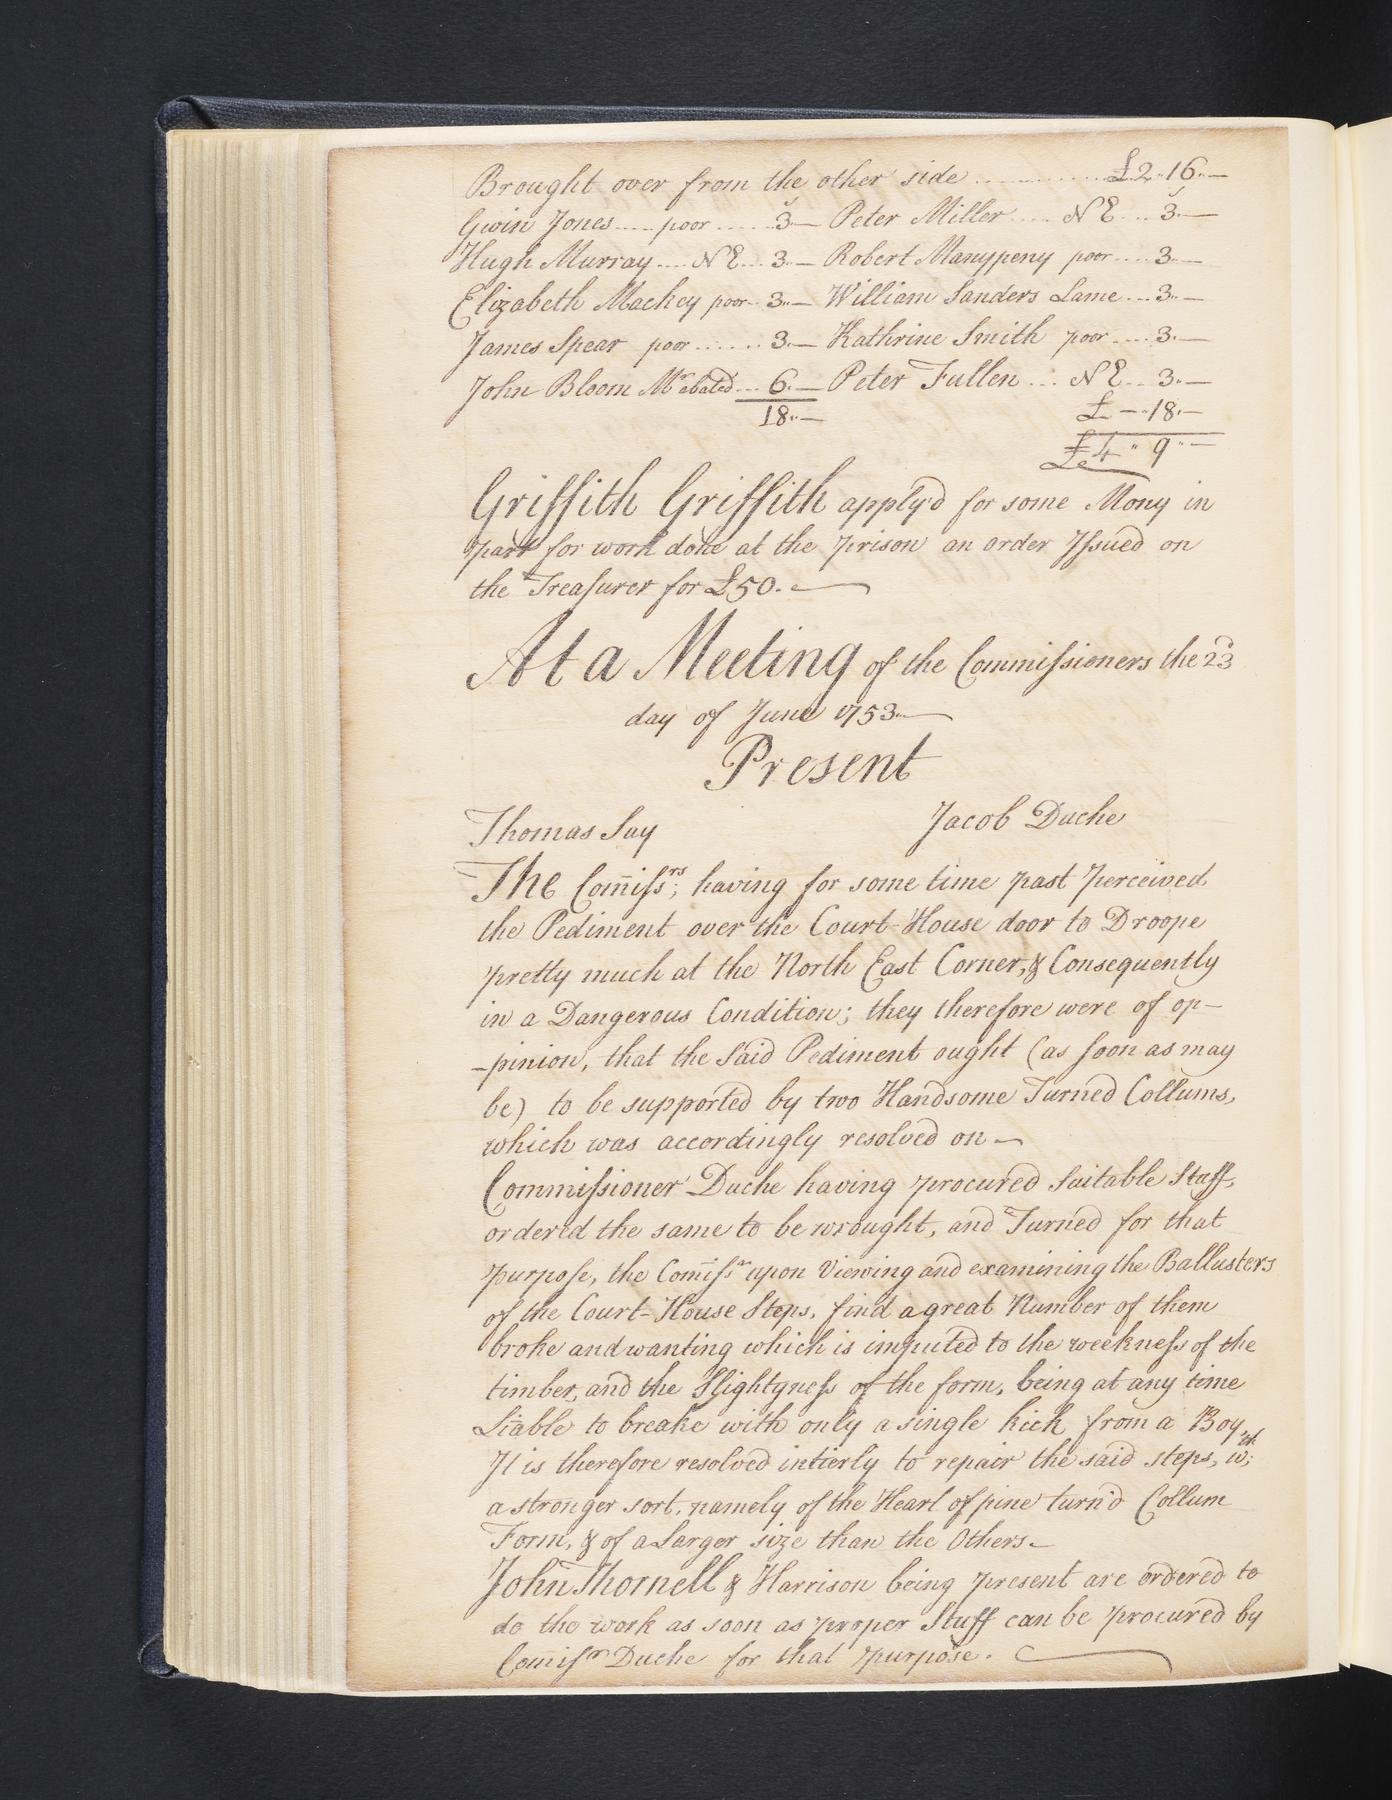 Brought over from the other side ............ £2 .. 16. —
Gwin Jones .... poor ...... 3. — Peter Miller .... NE ... 3. —
Hugh Murray .... NE ... 3. — Robert Manypeny poor .... 3. —
Elizabeth Mackey poor .. 3. — William Sanders Lame ... 3. —
James Spear poor ...... 3. — Kathrine Smith poor .... 3. —
John Bloom Mr ebated ... 6. — Peter Fullen ... NE ... 3. —
18. — £ — .. 18. —
£4 " 9 " —
Griffith Griffith apply'd for some Mony in
part for work done at the prison an order Issued on
the Treasurer for £50. —
At a Meeting of the Commissioners the 23d
day of June 1753. —
Present
Thomas Say Jacob Duche
The Com̄issrs; having for some time past perceived
the Pediment over the Court House door to Droope
pretty much at the North East Corner, & Consequently
in a Dangerous Condition; they therefore were of op-
-pinion, that the Said Pediment ought (as soon as may
be) to be supported by two Handsome Turned Collums,
which was accordingly resolved on —
Commissioner Duche having procured Suitable Stuff,
ordered the same to be wrought, and Turned for that
purpose, the Com̄issrs upon Viewing and examining the Ballusters
of the Court-House Steps, find a great Number of them
broke and wanting which is imputed to the weekness of the
timber, and the Slightgness of the form, being at any time
Liable to breake with only a single kick from a Boy,
It is therefore resolved intierly to repair the said steps, wth;
a stronger sort, namely of the Heart of pine turn'd Collum
Form, & of a Larger size than the Others —
John Thornell & Harrison being present are ordered to
do the work as soon as proper Stuff can be procured by
Com̄issr Duche for that purpose.